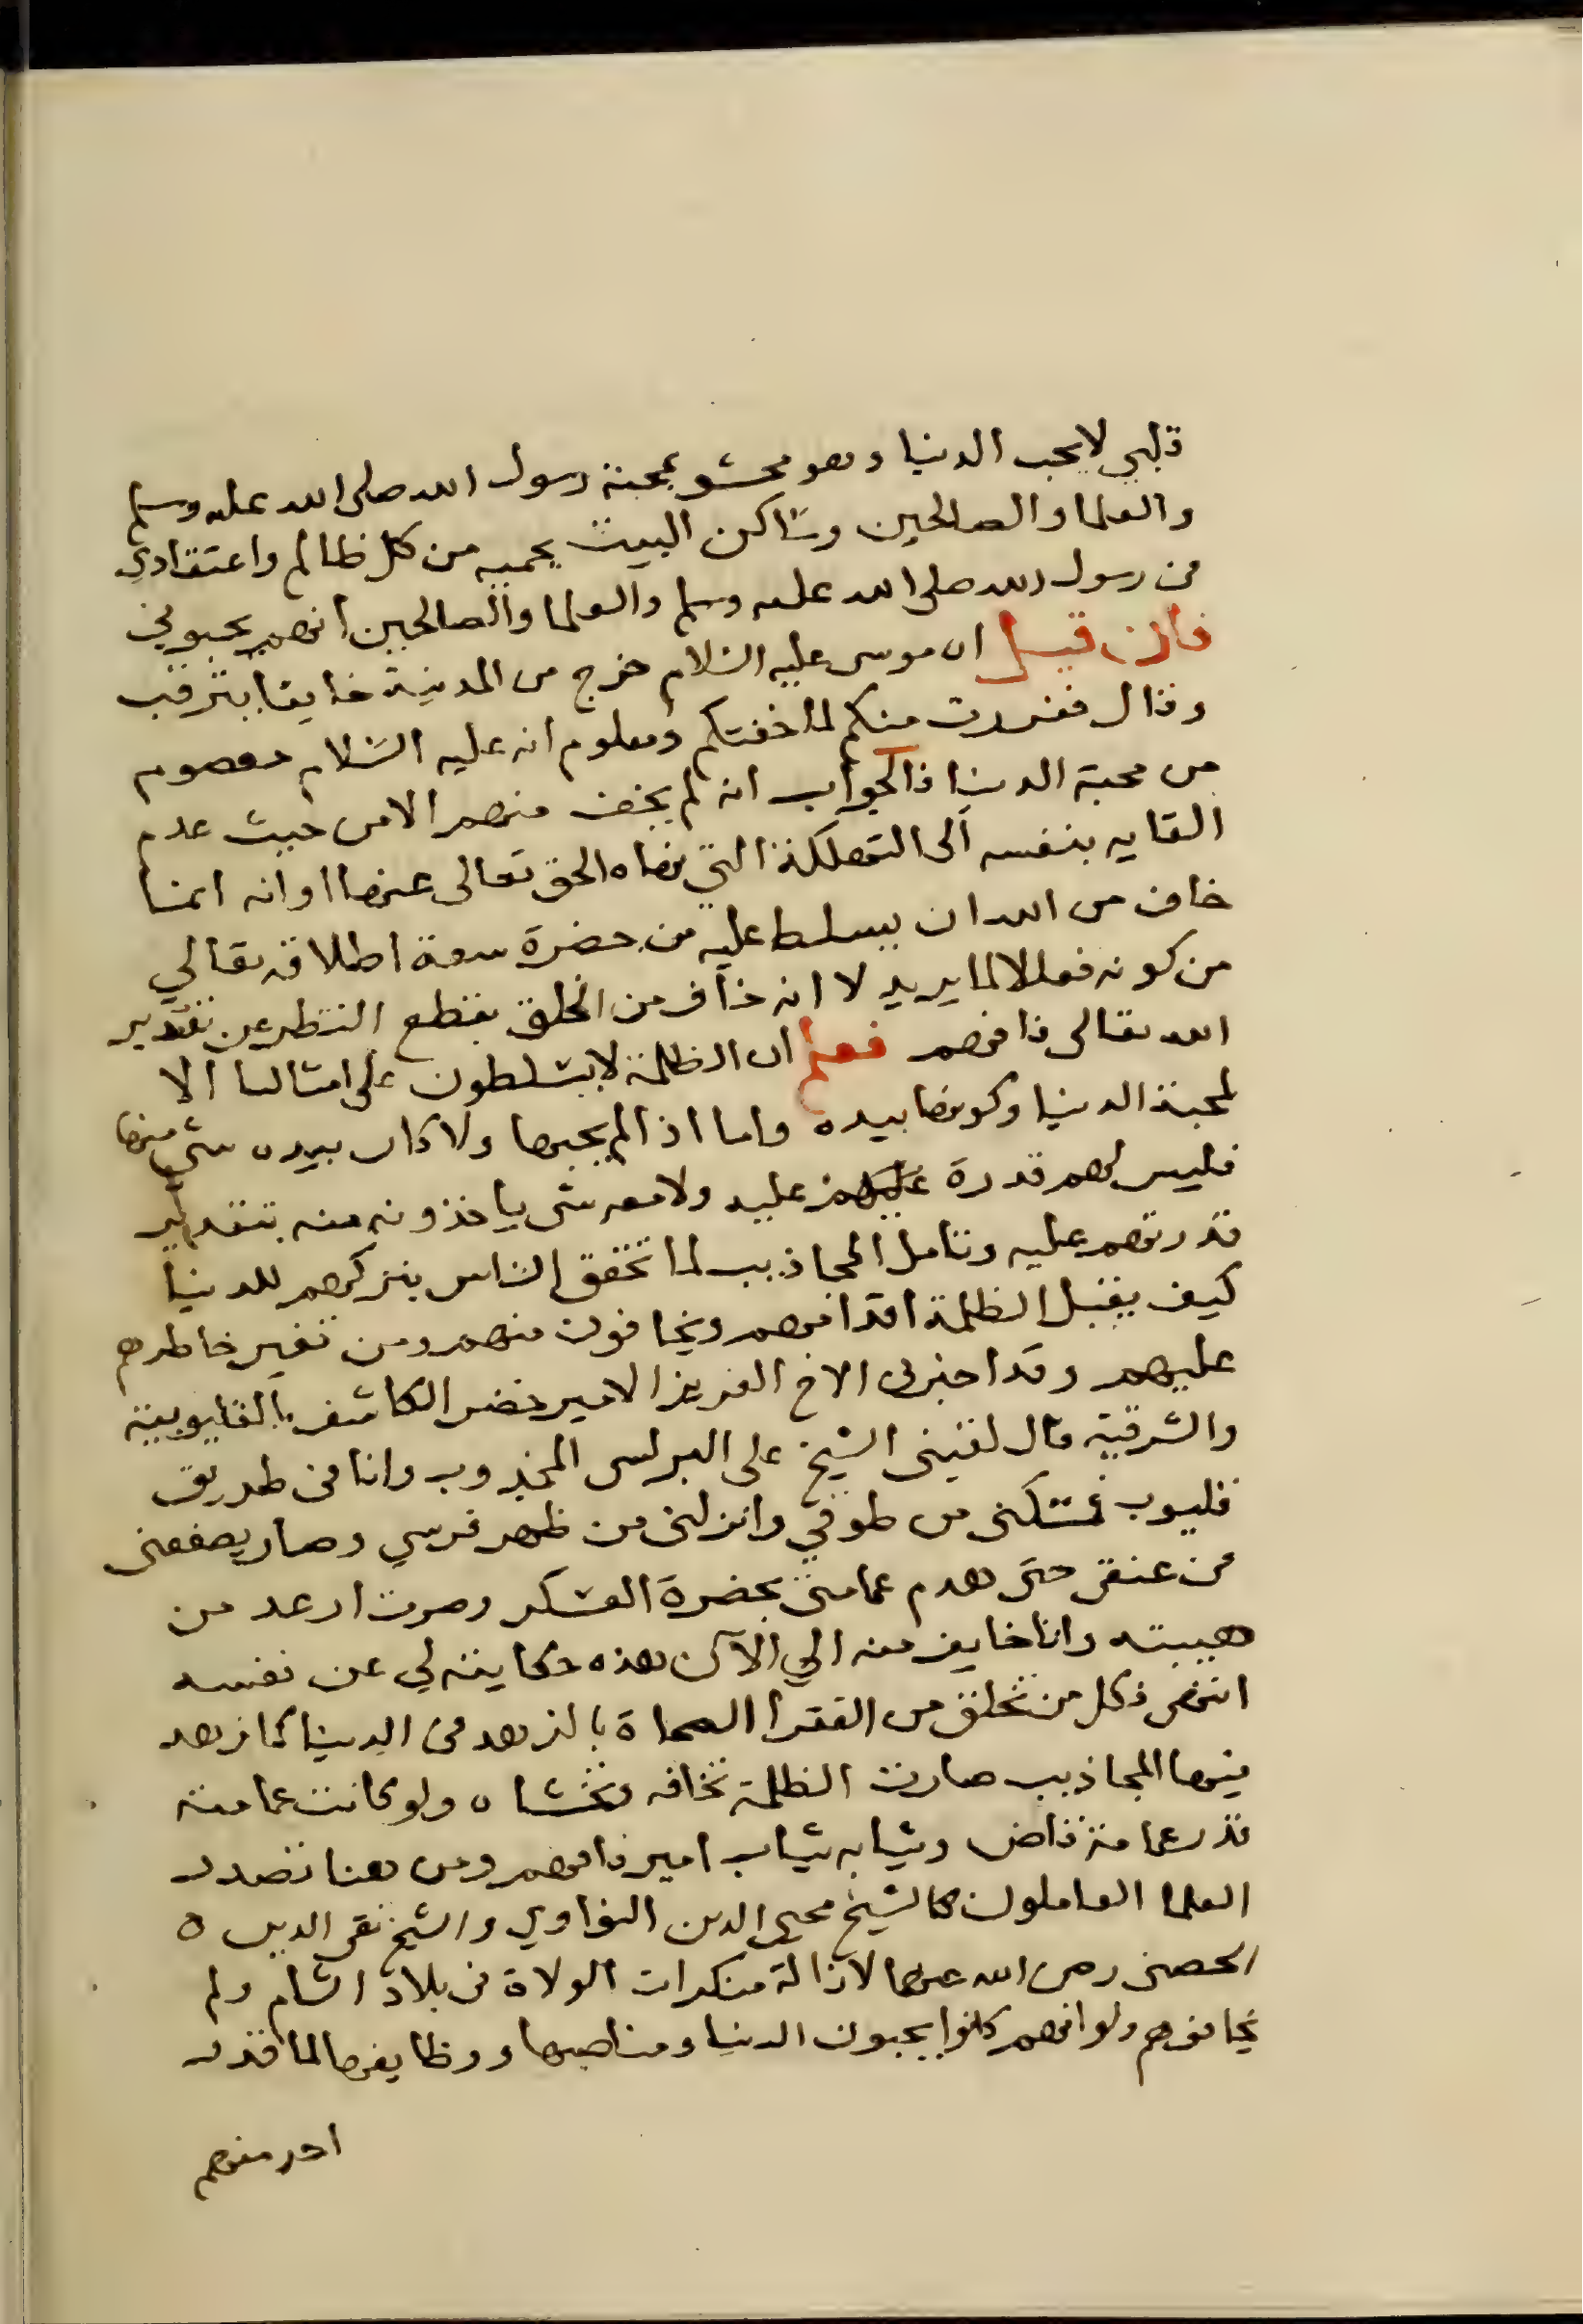 قلبي لا يحب الدنيا وهو محشو بمحبة رسول الله صلى الله عليه وسلم
والعلما والصالحين وساكن البيت يحميه من كل ظالم واعتقادي
من رسول الله صلى الله عليه وسلم والعلما والصالحين انهم يحبوني
فان قيل ان موسى عليه السلام خرج من المدينة خايفا يترقب
وقال ففررت منكم لما خفتكم ومعلوم انه عليه السلام معصوم
من محبة الدنيا فالجواب انه لم يخف منهم الا من حيث عدم
القايه بنفسه الى التهلكة التي نهاه الحق تعالى عنها او انه انما
خاف من الله ان يسلط عليه من حضرة سعة اطلاقه تعالي
من كونه فعالا لما يريد لا انه خاف من الخلق بقطع النظر عن تقدير
الله تعالى فافهم فعلم ان الظلمة لا يتسلطون على امثالنا الا
لمحبة الدنيا وكونها بيده واما اذا لم يحبها ولا كان بيده شي منها
فليس لهم قدرة عليه ولا معه شي ياخذونه منه بتقدير
قدرتهم عليه وتامل المجاذيب لما تحقق الناس بتركهم للدنيا
كيف يقبل الظلمة اقدامهم ويخافون منهم ومن تغير خاطرهم
عليهم وقد اخبرني الاخ العزيز الامير خضر الكاشف بالقليوبية
والشرقية قال لقيني الشيخ على البرلسي المجذوب وانا في طريق
قليوب فمسكني من طوقي وانزلني من ظهر فرسي وصار يصفعني
في عنقي حتى هدم عمامتي بحضرة العسكر وصرت ارعد من
هيبته وانا خايف منه الي الآن هذه حكايته لي عن نفسه
انتهى فكل من تخلق من الفقرا الصحاة بالزهد في الدنيا كما زهد
فيها المجاذيب صارت الظلمة تخافه وتخشاه ولو كانت عمامته
قدر عمامة قاض وثيابه ثياب امير فافهم ومن هنا تصدر
العلما العاملون كالشيخ محيي الدين النواوي والشيخ تقي الدين
الحصني رضي الله عنهما لازالة منكرات الولاة في بلاد الشام ولم
يخافوهم ولو انهم كانوا يحبون الدنيا ومناصبها ووظايفها لما قدر
احد منهم